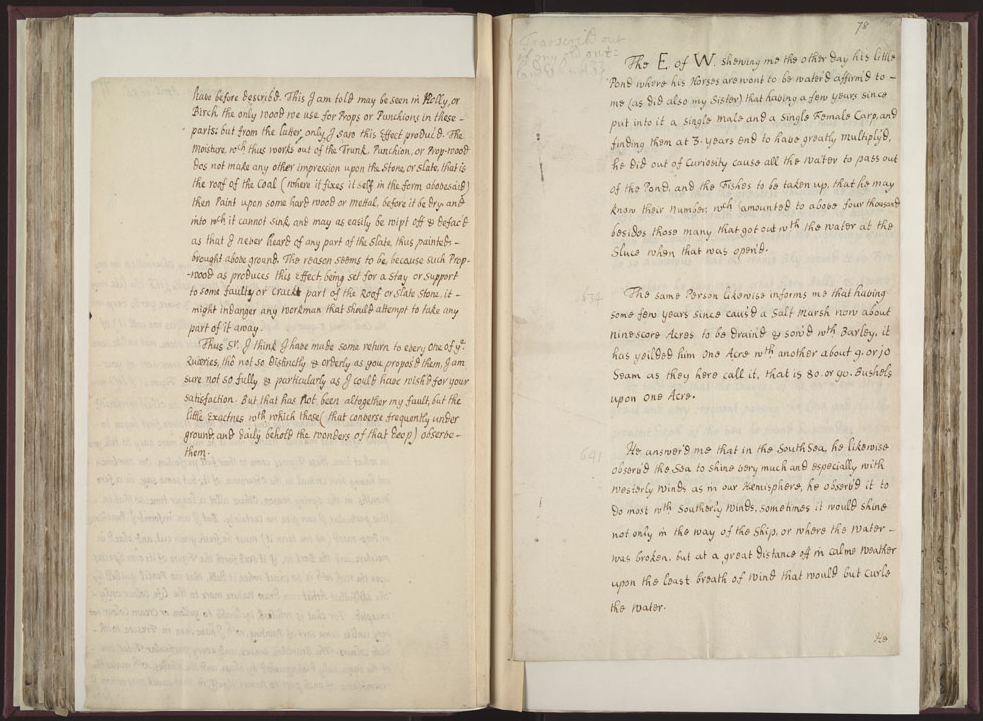 have before describ'd. This I am told may be seen in Holly, or
Birch the only wood we use for Props or Punchions in these -
parts: but from the latter only I saw this Effect produc'd. The
moisture wch thus works out of the Trunk, Punchion, or Prop-wood
dos not make any other impression upon the Stone, or Slate, that is
the roof of the Coal (where it fixes it self in the form abovesaid)
then Paint upon some hard wood or mettal, before it be dry and
into wch it cannot sink, and may as easily be wipt off & defac'd
as that I never heard of any part of the Slate, thus painted -
brought above ground. The reason seems to be, because such Prop-
-wood as produces this Effect, being set for a stay or support
to some faulty or Crackt part of the Roof or Slate Stone, it -
might indanger any workman that should attempt to take any
part of it away.
Thus Sr. I think I have made some return to every one of yr.
Queries, thô not so distinctly & orderly as you propos'd them, I am
sure not so fully & particularly as I could have wish'd for your
satisfaction. But that has not been altogether my fault, but the
little Exactnes wth which those (that converse frequently under
ground, and daily behold the wonders of that deep) observe -
them.
78
Transcrib'd out
The E. of W. shewing me the other day his little
Pond where his Horses are wont to be water'd affirm'd to -
me (as did also my Sister) that having a few years since
put into it a single male and a single Female Carp, and
finding them at 3. years End to have greatly multiply'd,
he did out of Curiosity cause all the water to pass out
of the Pond, and the Fishes to be taken up, that he may
know their number, wch amounted to above four thousand
besides those many that got out wth the water at the
Sluce when that was open'd.
634
The same Person likewise informs me that having
some few years since caus'd a Salt Marsh now about
ninescore Acres to be drain'd & sow'd wth Barley, it
has yeilded him one Acre wth another about 9. or 10
Seam as they here call it, that is 80. or 90. Bushels
upon one Acre.
641
He answer'd me that in the South Sea, he likewise
observ'd the Sea to shine very much and especially with
westerly winds as in our Hemisphere, he observ'd it to
do most wth Southerly winds, sometimes it would shine
not only in the way of the Ship, or where the water -
was broken, but at a great distance off in calme weather
upon the least breath of wind that would but curle
the water.
He